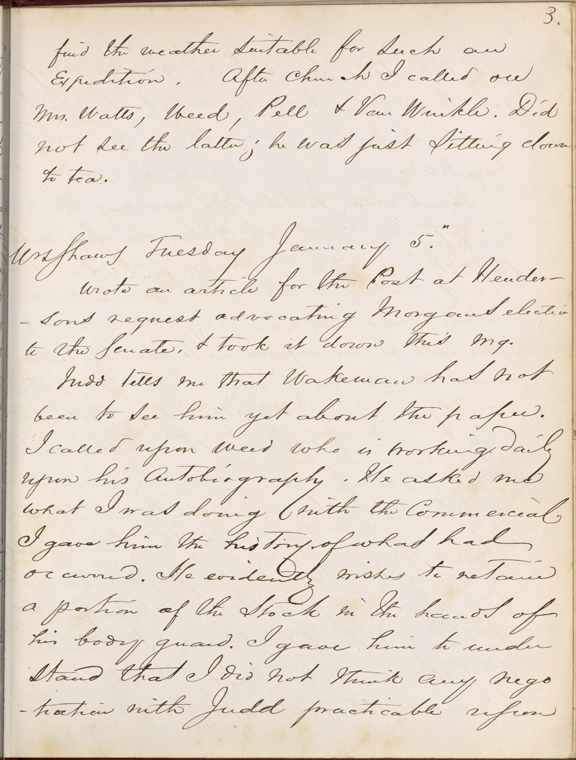 3.
find the weather suitable for such an
Expedition. After Church I called on
Mrs. Watts, Weed, Pell & Van Winkle. Did
not see the latter; he was just sitting down
to tea.
Mrs Shaws Tuesday January 5."
Wrote an article for the Post at Hender-
-sons request advocating Morgans election
to the Senate. & took it down this mg.
Judd tells me that Wakeman has not
been to see him yet about the paper.
I called upon Weed who is working daily
upon his Autobiography. He asked me
what I was doing with the Commercial
I gave him the history of what had
occurred. He evidently wishes to retain
a portion of the Stock in the hands of
his body guard. I gave him to under
stand that I did not think any nego
-tiation with Judd practicable upon